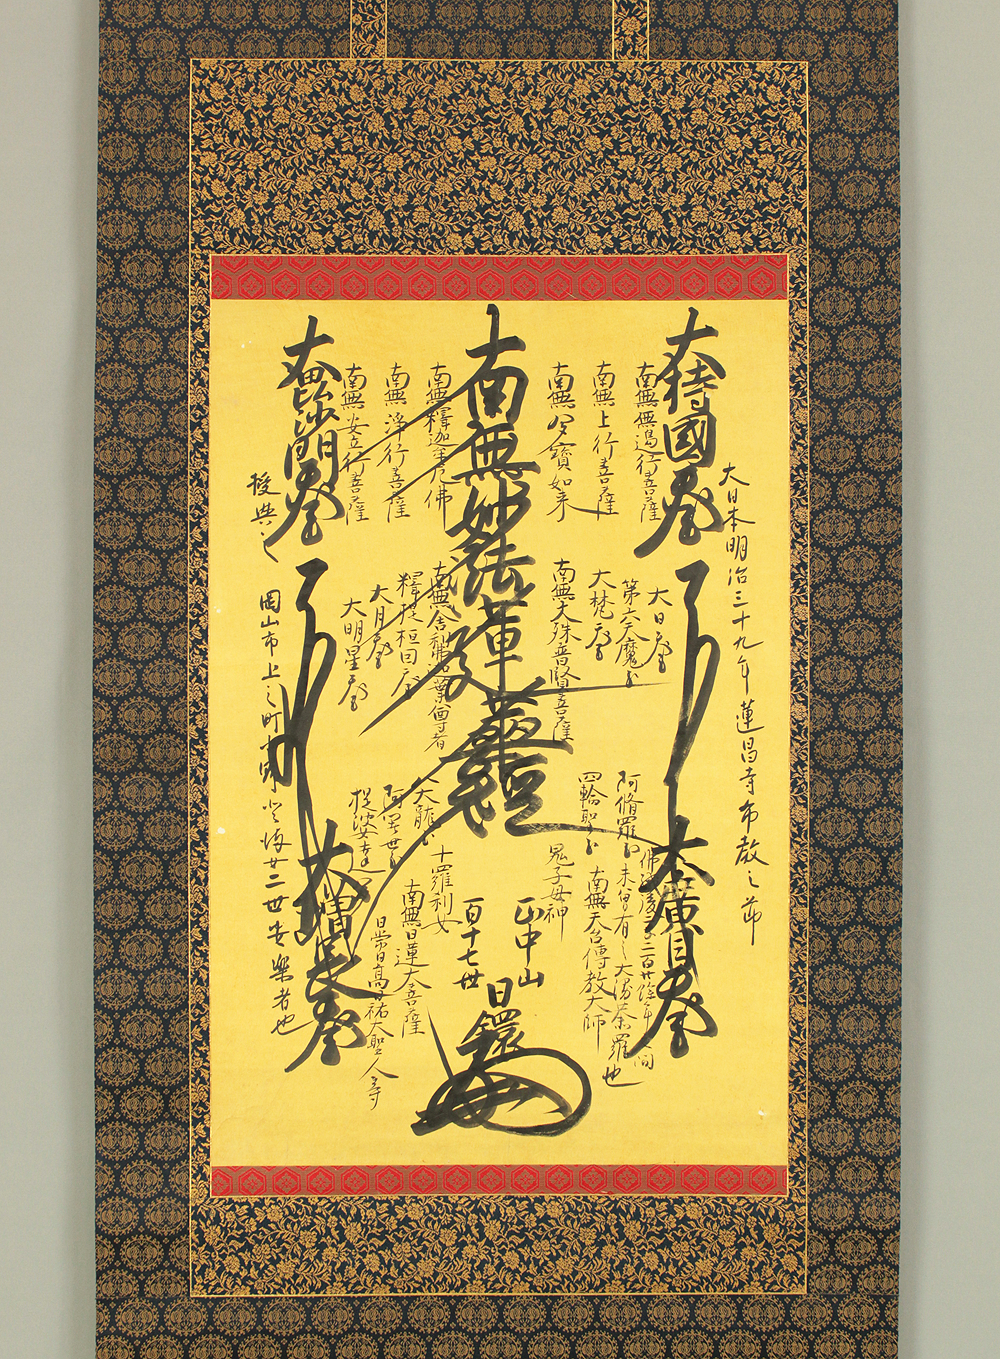 大持國天王
大日本明治三十九年蓮昌寺布教之節
南無無邊行菩薩
南無上行菩薩
南無多寶如来
南無妙法蓮華経
南無釋迦牟尼佛
南無浄行菩薩
南無安立行菩薩
大毘沙門天王
授与之
大日天王
第六天魔王
大梵天王
南無文殊普賢菩薩
南無舎利弗迦葉尊者
釋提桓因天王
大月天王
大明星天王
岡山市上之町
廿二世安楽者也
大廣目天王
佛滅後二千二百廿餘年之間
未曾有之大漫荼羅也
阿脩羅王
四輪聖王
南無天台傳教大師
鬼子母神
大龍王
十羅刹女
阿闍世王
提婆達
南無日蓮大菩薩
日常日高日祐大聖人等
大増長天王
正中山
百十七世
日鐶